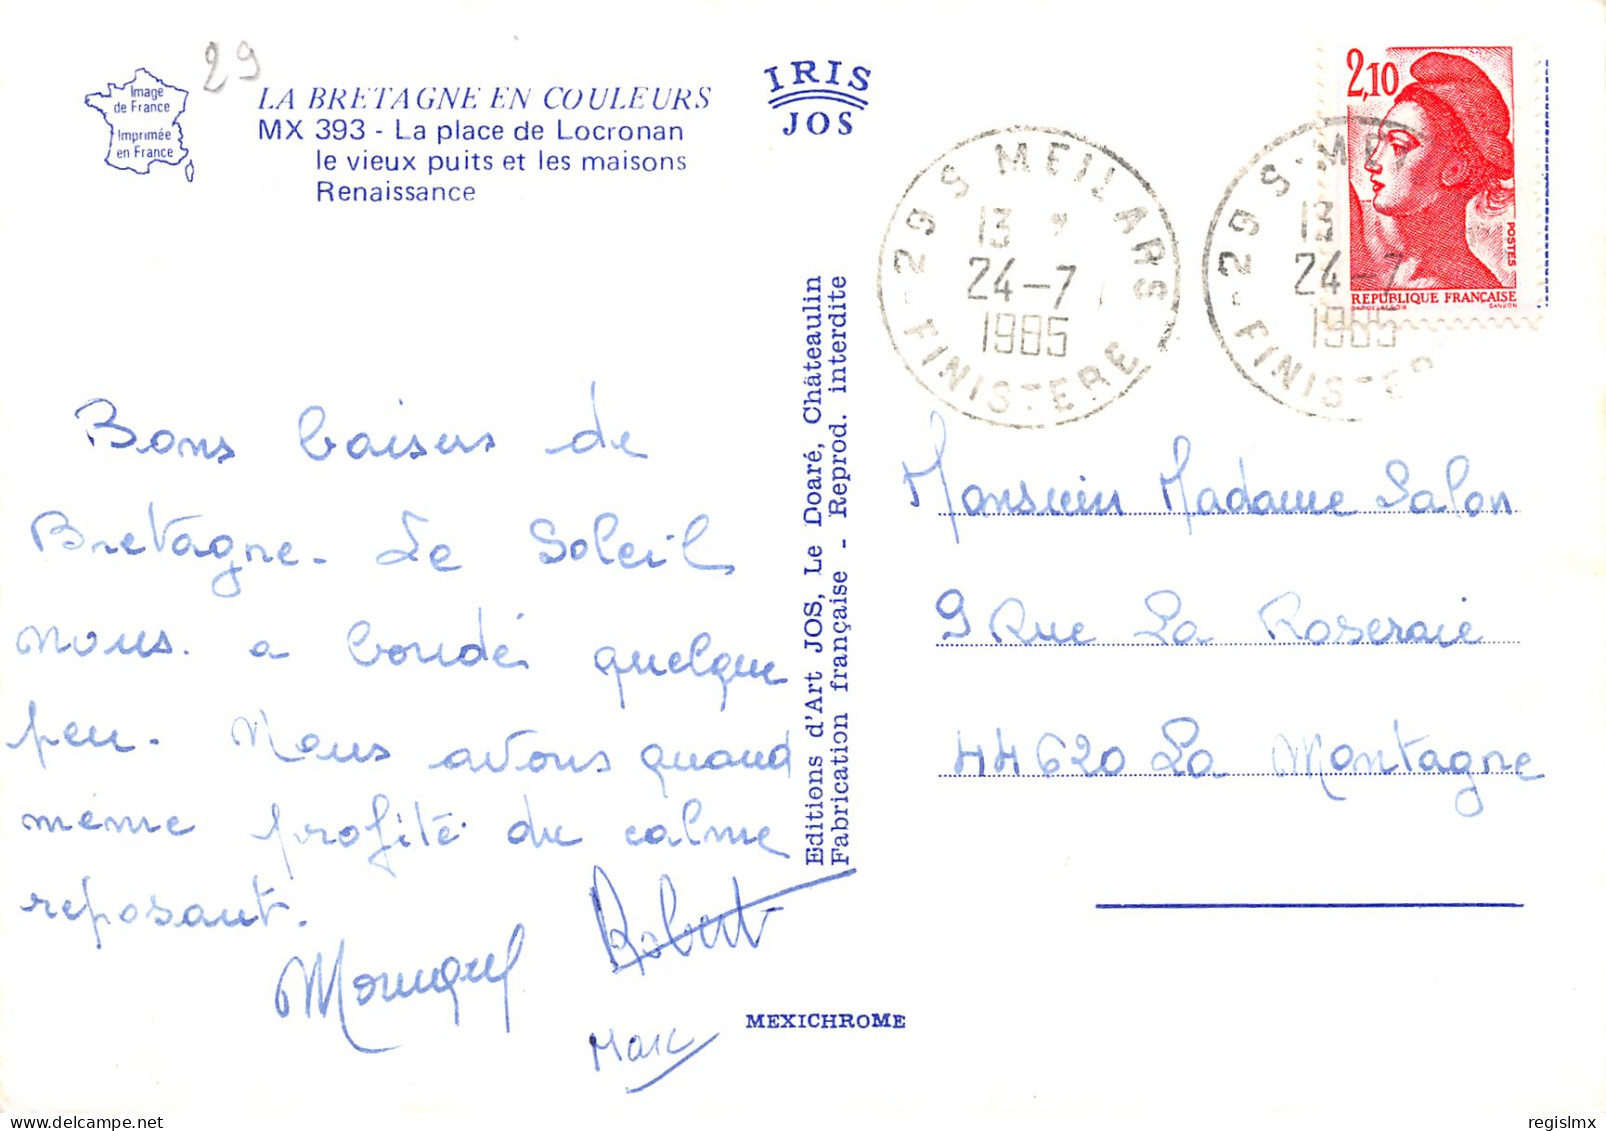 29
Image
de France
Imprimée
en France
LA BRETAGNE EN COULEURS
MX 393 - La place de Locronan
le vieux puits et les maisons
Renaissance
IRIS
JOS
29 S MEILARS
13 *
24-7
1985
FINISTERE
29 S MEI
13
24-7
1985
FINISTER
2,10
POSTES
REPUBLIQUE FRANÇAISE
GANDON
Bons baisers de
Bretagne. Le Soleil
nous a boudé quelque
peu. Nous avons quand
même profité du calme
reposant.
Robert
Marc
Editions d'Art JOS, Le Doaré, Châteaulin
Fabrication française - Reprod. interdite
Monsieur Madame Salon
9 Rue La Roseraie
44620 La Montagne
MEXICHROME
regislmx